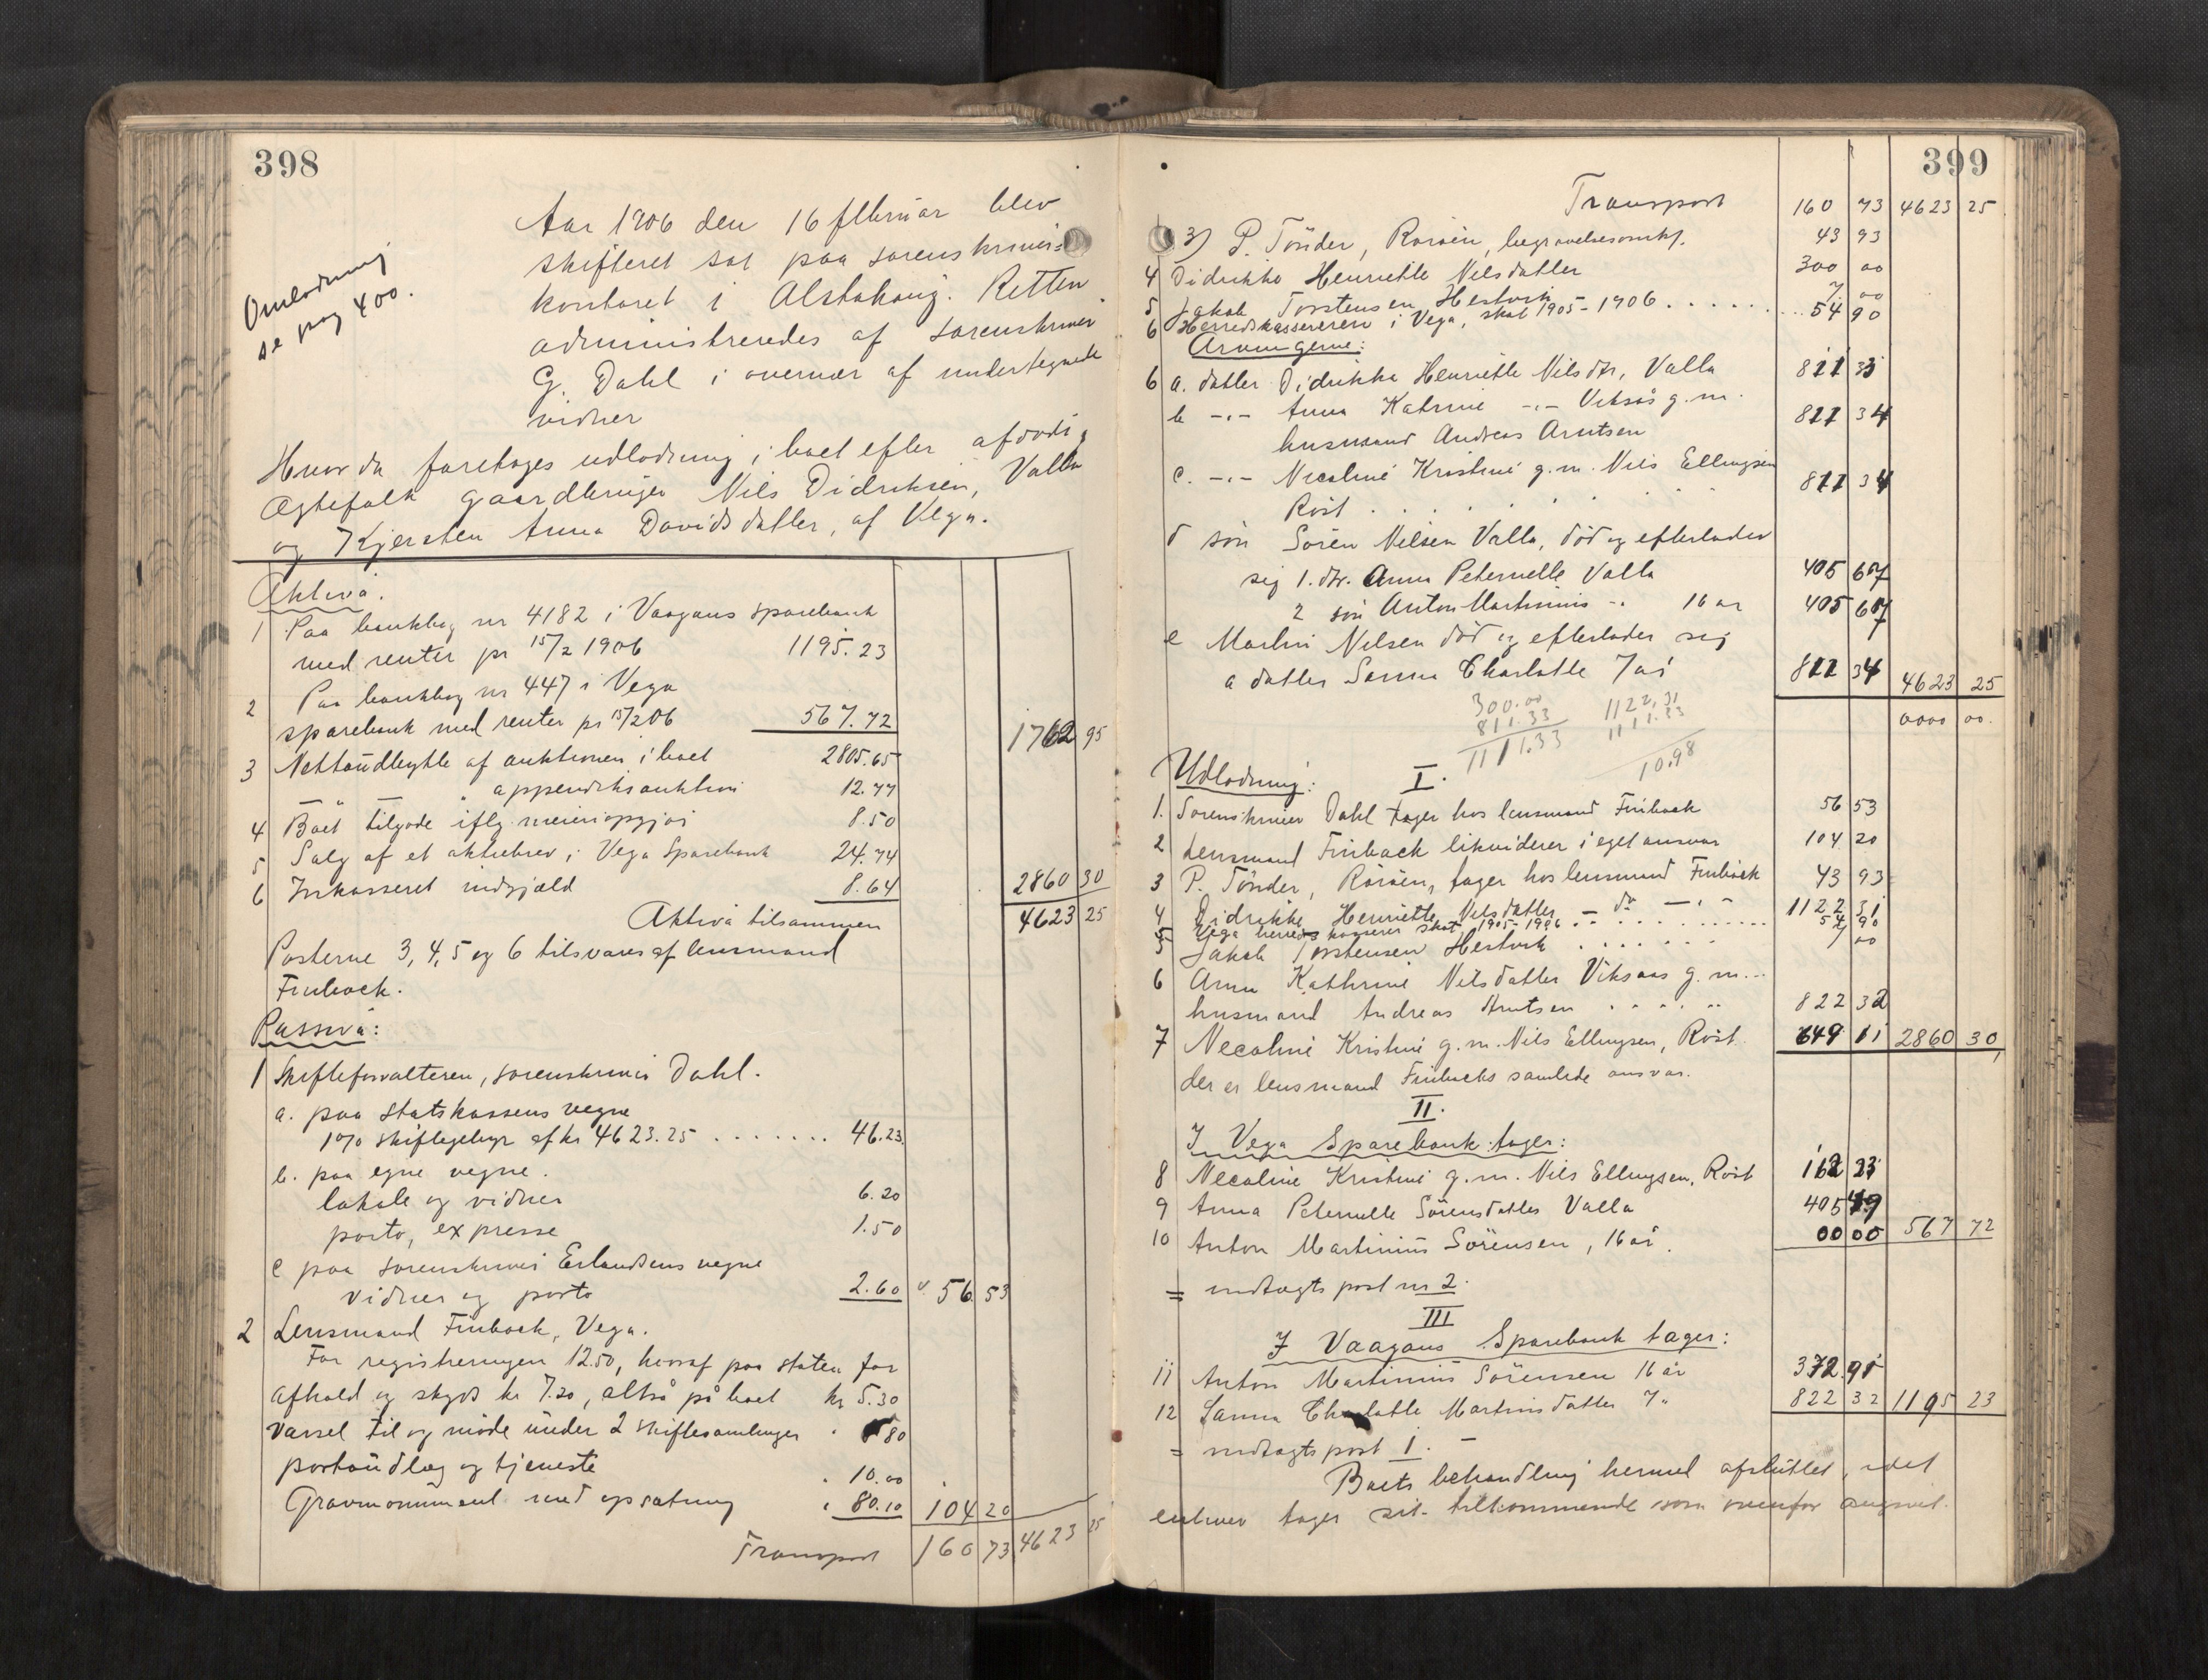 398
Omlodning
se pag 400.
Aar 1906 den 16 februar blev
skifteret sat paa sorenskriver=
kontoret i Alstahaug. Retten
administreredes af sorenskriver
G. Dahl i overvær af undertegnede
vidner
Hvor da foretoges udlodning i boet efter afdøde
Ægtefolk gaardbruger Nils Didriksen, Valla
og Kjersten Anna Davidsdatter, af Vega.
Aktiva.
1 Paa bankbog nr 4182 i Vaagans sparebank
med renter pr 15/2 1906 1195.23
2 Paa bankbog nr 447 i Vega
sparebank med renter pr 15/2 06 567.72 1762 95
3 Nettoudbytte af auktionen i boet 2805.65
— " — " appendiksauktion 12.77
4 Boet tilgode iflg. meieriopgjør 8.50
5 Salg af et aktiebrev i Vega Sparebank 24.74
6 Inkasseret indgjæld 8.64 2860 30
Aktiva tilsammen 4623 25
Posterne 3, 4, 5 og 6 tilsvares af lensmand
Finback.
Passiva:
1 Skifteforvalteren, sorenskriver Dahl.
a. paa statskassens vegne
1% skiftegebyr af kr 4623.25 ....... 46.23
b. paa egne vegne.
lokale og vidner 6.20
porto, expresse 1.50
c paa sorenskriver Erlandsens vegne
vidner og porto 2.60 56 53
2 Lensmand Finback, Vega.
For registreringen 12.50, hvoraf paa staten for
afhold og skyds kr 7.20, altså på boet kr 5.30
Varsel til og møde under 2 skiftesamlinger " 80
portoudlæg og tjeneste " 10.00
Gravmonument med opsætning " 80.10 104 20
Transport 160 73 4623 25
399
Transport 160 73 4623 25
3) P. Tönder, Rørøen, begravelsesomk. 43 93
4 Didrikke Henriette Nilsdatter 300 00
5 Jakob Torstensen Hestvik 7 00
6 Herredskassereren i Vega, skat 1905-1906 ..... 54 90
Arvingerne:
6 a. datter Didrikke Henriette Nilsdtr, Valla 811 33
b -"- Anna Katrine -"- Viksås g.m.
husmand Andreas Arntsen 811 34
c. -"- Necoline Kristine g.m. Nils Ellingsen
Röst . . . . . 811 34
d søn Sören Nilsen Valla, død og efterlader
sig 1. dtr. Anna Peternelle Valla 405 67
2 søn Anton Martinius -" 16 år 405 67
e Martin Nilsen död og efterlader sig
a datter Sanna Charlotte 7 år 811 34 4623 25
0000 00.
300.00
811.33
1111.33
1122.31
1111.33
10.98
Udlodning: I.
1. Sorenskriver Dahl tager hos lensmand Finback 56 53
2 Lensmand Finback likviderer i eget ansvar 104 20
3 P. Tönder, Rørøen, tager hos lensmand Finback 43 93
4 Didrikke Henriette Nilsdatter — do — " — 1122 31
Vega herreds kasserer skat 1905-1906 ...... 54 90
5 Jakob Torstensen Hestvik ...... 7 00
6 Anna Kathrine Nilsdatter Viksaas g.m...
husmand Andreas Arntsen ..... 822 32
7 Necoline Kristine g.m. Nils Ellingsen, Röst 649 11 2860 30
der er lensmand Finbacks samlede ansvar.
II.
I Vega Sparebank tager:
8 Necoline Kristine g.m. Nils Ellingsen, Röst 162 23
9 Anna Peternelle Sörensdatter Valla 405 49
10 Anton Martinius Sörensen, 16 år. 00 00 567 72
= indtægts post nr 2.
III
I Vaagans Sparebank tager:
11 Anton Martinius Sörensen 16 år 372.91
12 Sanna Charlotte Martinsdatter 7 " 822 32 1195 23
= indtægts post 1. —
Boets behandling hermed afsluttet, idet
enhver tager sit tilkommende som ovenfor angivet.